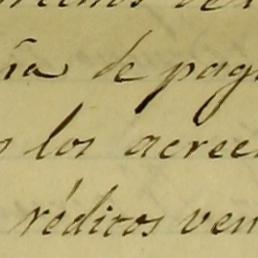 de pag
los acree
réditos ven